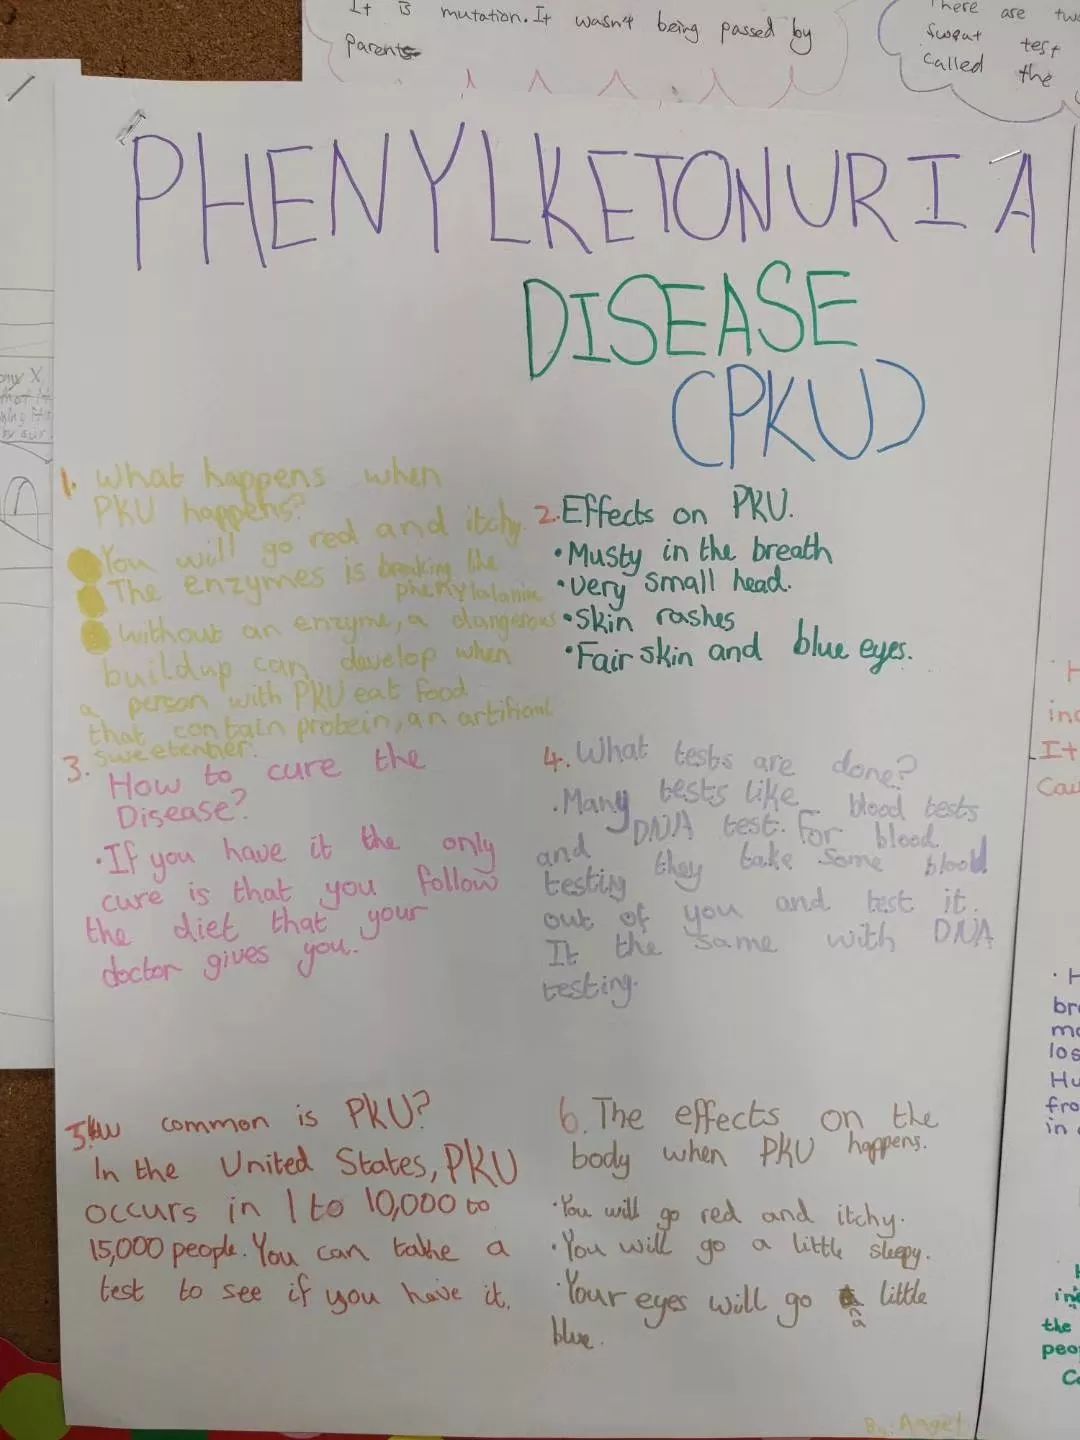 It is mutation. It wasn't being passed by
parents
There are
sweat test
called the
PHENYLKETONURIA
DISEASE
(PKU)
1. What happens when
PKU happens?
You will go red and itchy.
The enzymes is breaking the
phenylalanine
without an enzyme, a dangerous
buildup can develop when
a person with PKU eat food
that contain protein, an artificial
sweetenner.
2. Effects on PKU.
• Musty in the breath
• very small head.
• skin rashes
• Fair skin and blue eyes.
3. How to cure the
Disease?
• If you have it the only
cure is that you follow
the diet that your
doctor gives you.
4. What tests are done?
• Many tests like blood tests
and DNA test. For blood
testing they take some blood
out of you and test it.
It the same with DNA
testing.
5. How common is PKU?
In the United States, PKU
occurs in 1 to 10,000 to
15,000 people. You can take a
test to see if you have it.
6. The effects on the
body when PKU happens.
• You will go red and itchy.
• You will go a little sleepy.
• Your eyes will go a little
blue.
It
the
in
By: